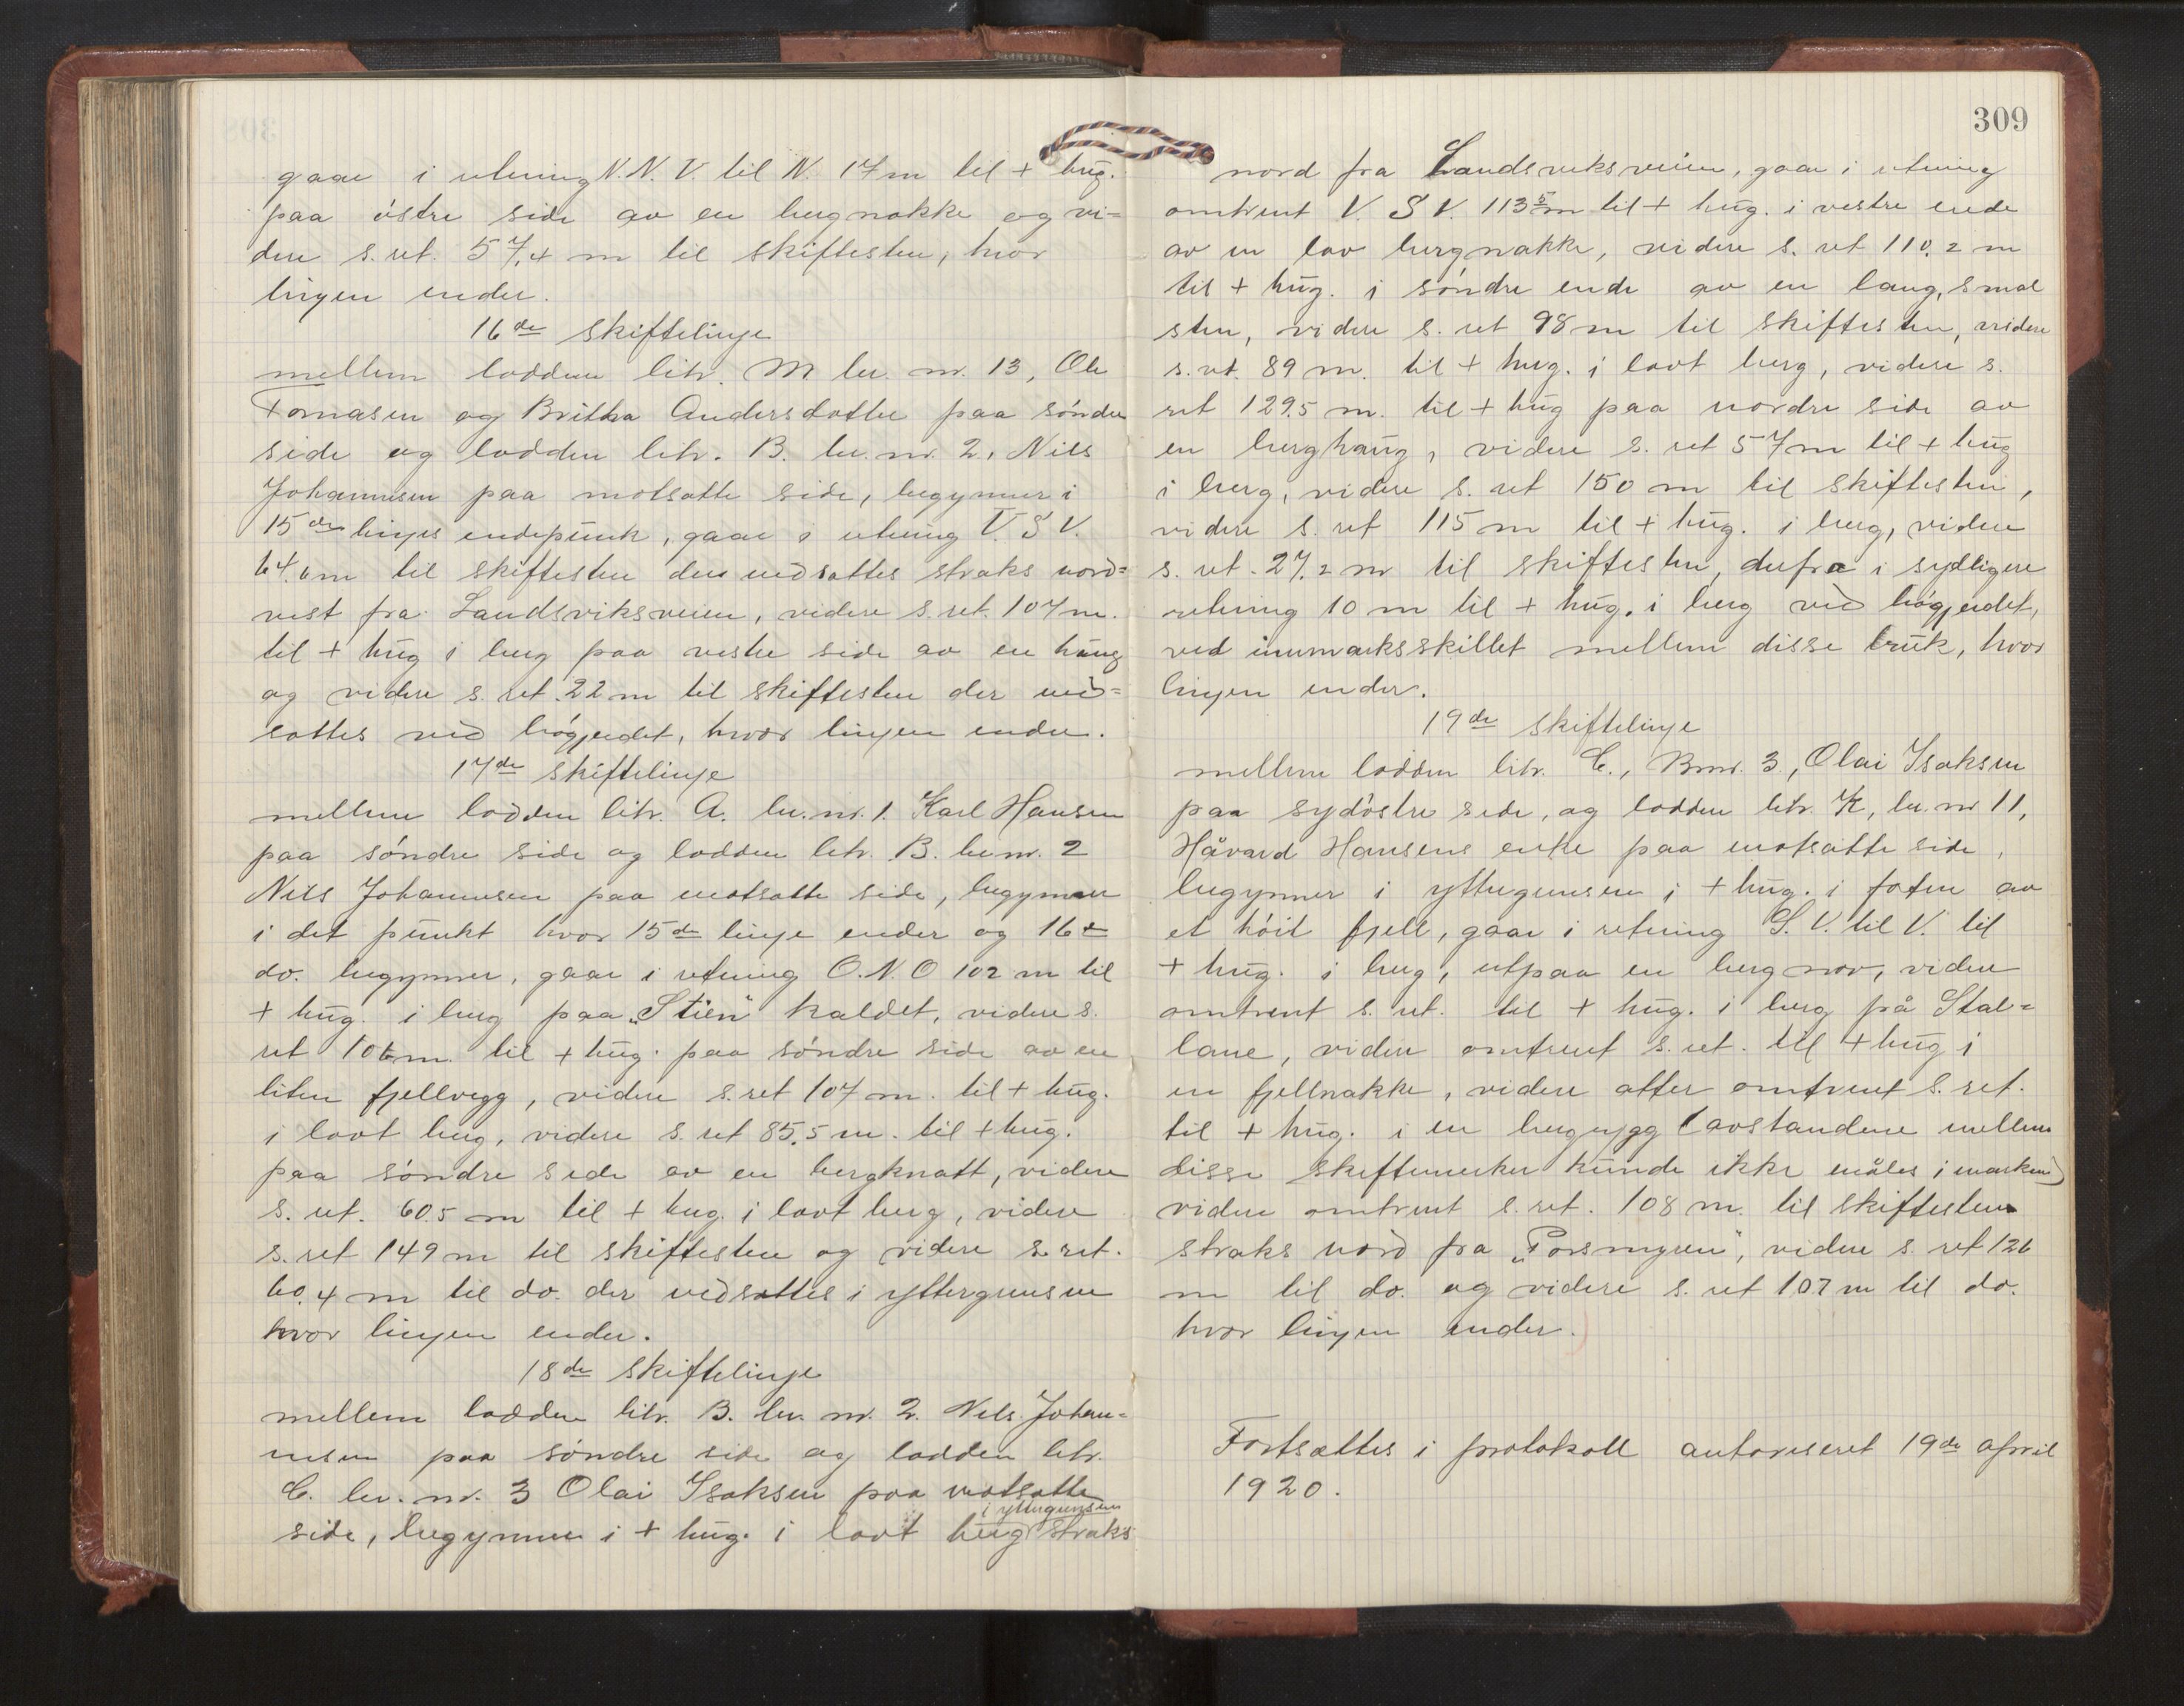 gaar i retning N.N.V. til N. 17 m til + hug.
paa östre side av en bergnakke og vi=
dere s. ret. 57,4 m til skiftesten, hvor
linjen ender.
16de skiftelinje
mellem lodden litr. M br. nr. 13, Ole
Tomasen og Britha Andersdatter paa söndre
side og lodden litr. B. br. nr. 2, Nils
Johannesen paa motsatte side, begynner i
15de linjes endepunk, gaar i retning V. S V.
64,6 m til skiftesten der nedsattes straks nord=
vest fra Landsviksveien, videre s. ret. 107 m.
til + hug i berg paa vestre side av en haug
og videre s. ret 22 m til skiftesten der ned=
sattes ved bögjerdet, hvor linjen ender.
17de skiftelinje
mellem lodden litr. A. br. nr. 1. Karl Hansen
paa söndre side og lodden litr. B. br. nr. 2
Nils Johannesen paa motsatte side, begynner
i det punkt hvor 15de linje ender og 16de
do. begynner, gaar i retning O.N.O 102 m til
+ hug. i berg paa „Stien" kaldet, videre s.
ret 106 m. til + hug. paa söndre side av en
liten fjellvegg, videre s. ret 107 m. til + hug.
i lavt berg, videre s. ret 85,5 m. til + hug.
paa söndre side av en bergknatt, videre
s. ret. 60,5 m til + hug. i lavt berg, videre
s. ret 149 m til skiftesten og videre s. ret.
60,4 m til do. der nedsattes i yttergrensen
hvor linjen ender.
18de skiftelinje
mellem lodden litr. B. br. nr. 2. Nils Johan=
nesen paa söndre side og lodden litr.
C. br. nr. 3 Olai Isaksen paa motsatte
i yttergrensen
side, begynner i + hug. i lavt berg straks
309
nord fra Landsviksveien, gaar i retning
omtrent V. S V. 113,5 m til + hug. i vestre ende
av en lav bergnakke, videre s. ret 110,2 m
til + hug. i söndre ende av en lang, smal
sten, videre s. ret 98 m til skiftesten, videre
s. ret. 89 m. til + hug. i lavt berg, videre s.
ret 129,5 m. til + hug paa nordre side av
en berghaug, videre s. ret 57 m til + hug
i berg, videre s. ret 150 m til skiftesten,
videre s. ret 115 m til + hug. i berg, videre
s. ret. 27,2 m til skiftesten, derfra i sydligere
retning 10 m til + hug. i berg ved bögjerdet,
ved innmarksskillet mellem disse bruk, hvor
linjen ender.
19de skiftelinje
mellem lodden litr. C., Brnr. 3, Olai Isaksen
paa sydöstre side, og lodden litr. K, br. nr 11,
Håvard Hansens enke paa motsatte side,
begynner i yttergrensen i + hug. i foten av
et höit fjell, gaar i retning S. V. til V. til
+ hug. i berg, utpaa en bergnov, videre
omtrent s. ret. til + hug. i berg på Stal=
lane, videre omtrent s. ret. til + hug i
en fjellnakke, videre atter omtrent s. ret.
til + hug. i en bergrygg (avstandene mellem
disse skiftemerker kunde ikke måles i marken)
videre omtrent s. ret. 108 m. til skiftesten
straks nord fra „Porsmyren", videre s. ret 126
m til do. og videre s. ret 107 m til do.
hvor linjen ender.
Fortsættes i protokoll autoriseret 19de april
1920.